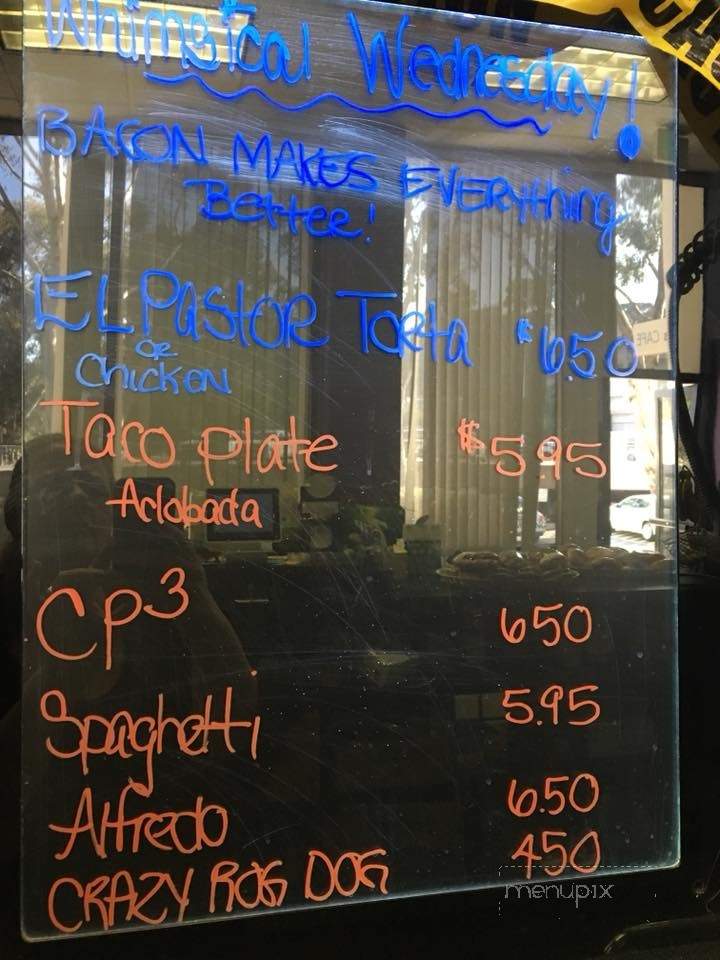 Whimsical Wednesday!
BACON MAKES EVERYthing
Better!
EL PAStOR Torta $6.50
or
Chicken
Taco plate $5.95
Adobada
Cp3 650
Spaghetti 5.95
Alfredo 6.50
CRAZY ROG DOG 450
menupix
CAFE